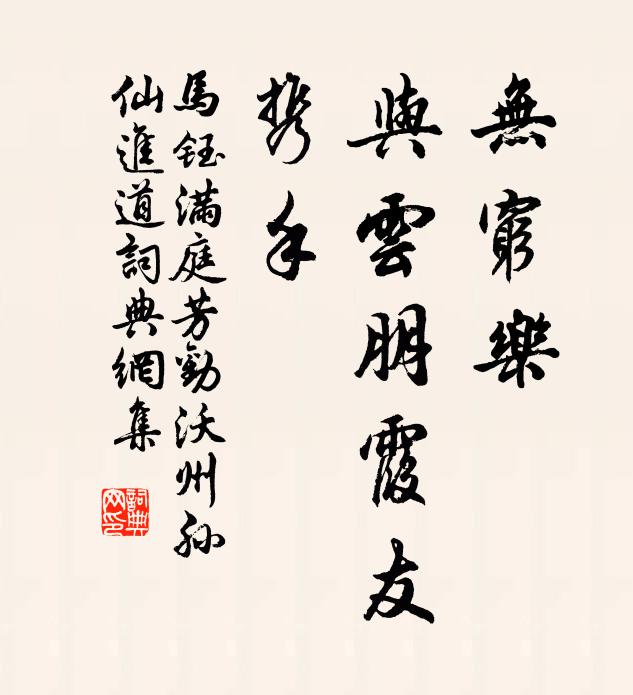 無窮樂
與雲朋霞友
携手
馬鈺滿庭芳勸沃州孫
仙進道詞典網集
詞典網印